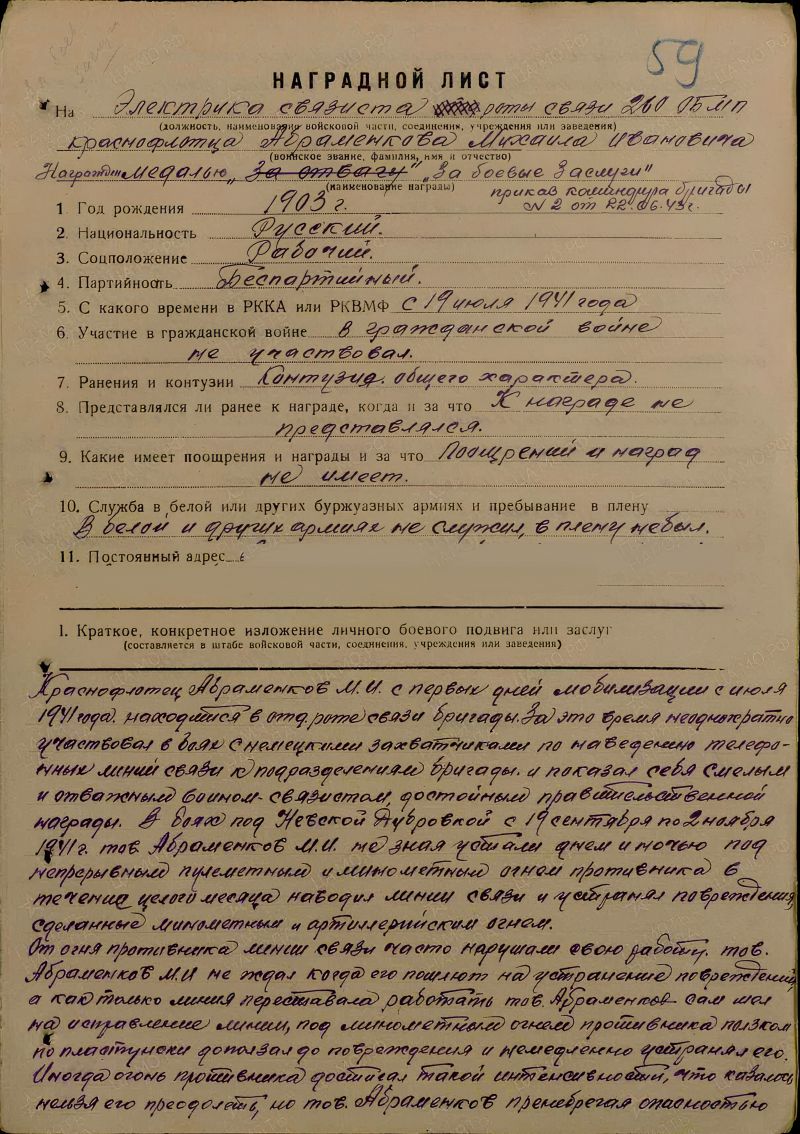 59
НАГРАДНОЙ ЛИСТ
На Электрика связиста роты связи 260 ОБМП
(должность, наименование войсковой части, соединения, учреждения или заведения)
краснофлотца Абраменкова Михаила Ивановича
(воинское звание, фамилия, имя и отчество)
Награжден медалью „За отвагу" „За боевые заслуги"
(наименование награды)
приказ командира бригады
N 2 от 22.06.43 г.
1 Год рождения 1903 г.
2. Национальность Русский.
3. Соцположение Рабочий.
4. Партийность Беспартийный.
5. С какого времени в РККА или РКВМФ с 19 июля 1941 года
6. Участие в гражданской войне в гражданской войне
не участвовал.
7. Ранения и контузии Контузия общего характера.
8. Представлялся ли ранее к награде, когда и за что К награде не
представлялся.
9. Какие имеет поощрения и награды и за что Поощрений и наград
не имеет.
10. Служба в белой или других буржуазных армиях и пребывание в плену
В белой и других армиях не служил, в плену не был.
11. Постоянный адрес
I. Краткое, конкретное изложение личного боевого подвига или заслуг
(составляется в штабе войсковой части, соединения, учреждения или заведения)
Краснофлотец Абраменков М.И. с первых дней мобилизации с июля
1941 года. находится в отд. роте связи бригады. За это время неоднократно
участвовал в боях с немецкими захватчиками по наведению телефо-
нных линий связи к подразделениям бригады. и показал себя смелым
и отважным воином-связистом, достойным правительственной
награды. В боях под Невской Дубровкой с 19 сентября по 2 ноября
1941 г. тов. Абраменков М.И. не зная устали днем и ночью под
непрерывным пулеметным и минометным огнем противника в
течении целого месяца наводил линии связи и устранял повреждения,
сделанные минометным и артиллерийским огнем.
От огня противника линии связи часто нарушали свою работу. тов.
Абраменков М.И не ждал когда его пошлют на устранение повреждений,
а как только линия переставала работать тов. Абраменков сам шел
на исправление линии, под минометным огнем противника ползком
по пластунски доползал до повреждения и немедленно устранял его.
Иногда огонь противника достигал такой интенсивности, что казалось
нельзя его преодолеть, но тов. Абраменков пренебрегая опасностью